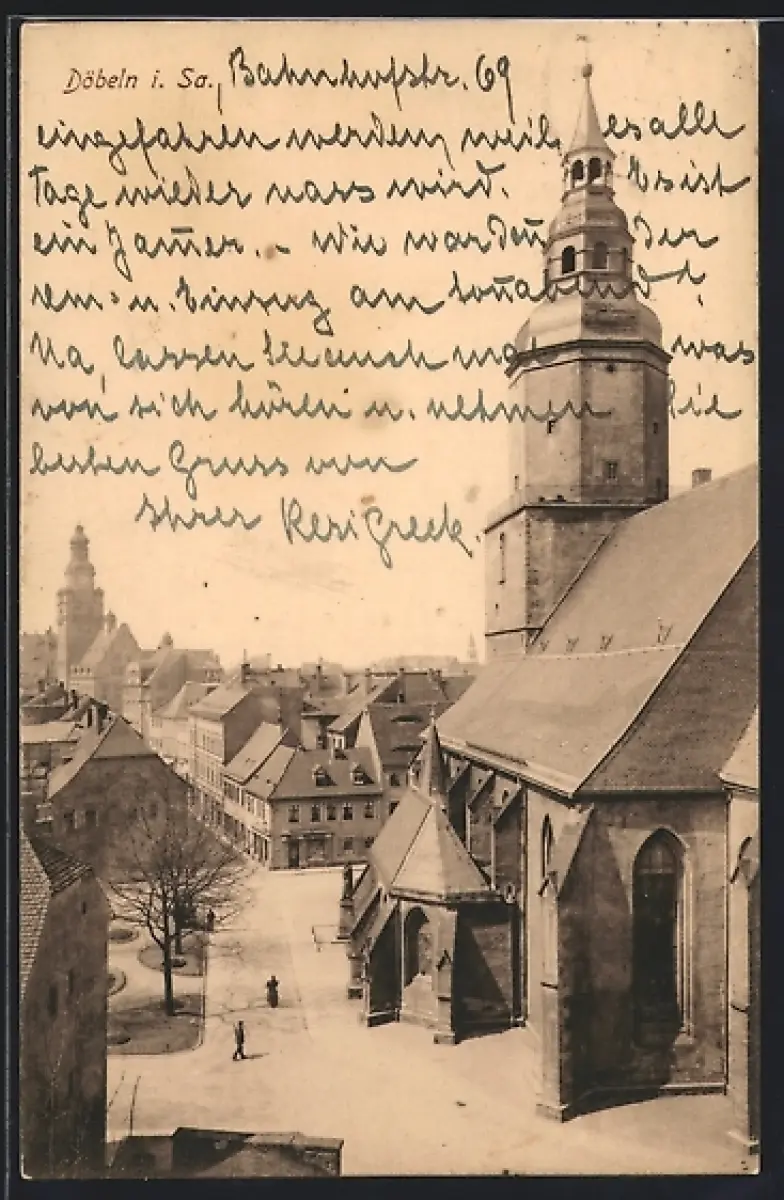 Döbeln i. Sa., Bahnhofstr. 69
eingefahren werden, weil es alle
Tage wieder nass wird. Es ist
ein Jam̅er. - Wie war den̅ der
Um- u. Einzug am Son̅abend.
Na, lassen Sie auch mal was
von sich hören u. nehmen Sie
besten Gruss von
Ihrer Resi Greek.